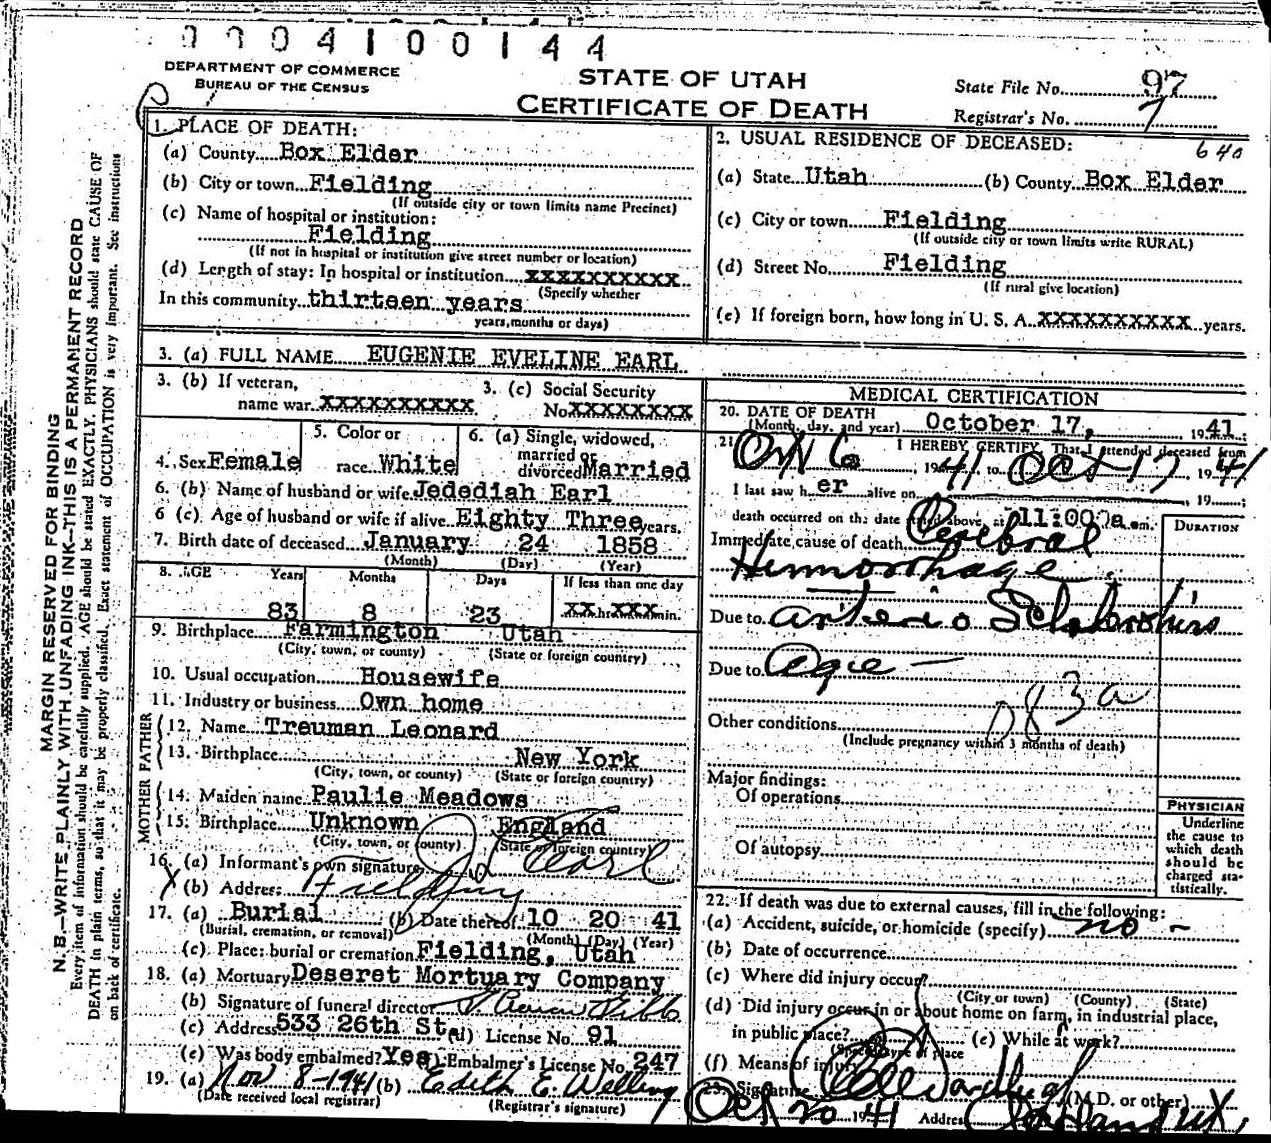 0004100144
DEPARTMENT OF COMMERCE
BUREAU OF THE CENSUS
STATE OF UTAH
CERTIFICATE OF DEATH
State File No. 97
Registrar's No. 7
MARGIN RESERVED FOR BINDING
N. B.—WRITE PLAINLY WITH UNFADING INK—THIS IS A PERMANENT RECORD
Every item of information should be carefully supplied. AGE should be stated EXACTLY. PHYSICIANS should state CAUSE OF
DEATH in plain terms, so that it may be properly classified. Exact statement of OCCUPATION is very important. See instructions
on back of certificate.
1. PLACE OF DEATH:
(a) County Box Elder
(b) City or town Fielding
(If outside city or town limits name Precinct)
(c) Name of hospital or institution:
Fielding
(If not in hospital or institution give street number or location)
(d) Length of stay: In hospital or institution xxxxxxxxxx
(Specify whether
In this community thirteen years
years, months or days)
2. USUAL RESIDENCE OF DECEASED:
640
(a) State Utah (b) County Box Elder
(c) City or town Fielding
(If outside city or town limits write RURAL)
(d) Street No. Fielding
(If rural give location)
(e) If foreign born, how long in U. S. A. xxxxxxxxxx years.
3. (a) FULL NAME EUGENIE EVELINE EARL
3. (b) If veteran,
name war xxxxxxxxxx
3. (c) Social Security
No xxxxxxxx
4. Sex Female
5. Color or
race White
6. (a) Single, widowed,
married or
divorced Married
6. (b) Name of husband or wife Jedediah Earl
6 (c) Age of husband or wife if alive Eighty Three years.
7. Birth date of deceased January 24 1858
(Month) (Day) (Year)
8. AGE Years Months Days If less than one day
83 8 23 xx hr. xxx min.
9. Birthplace Farmington Utah
(City, town, or county) (State or foreign country)
10. Usual occupation Housewife
11. Industry or business Own home
FATHER
12. Name Treuman Leonard
13. Birthplace New York
(City, town, or county) (State or foreign country)
MOTHER
14. Maiden name Paulie Meadows
15. Birthplace Unknown England
(City, town, or county) (State or foreign country)
16. (a) Informant's own signature J d Earl
X (b) Address Fielding
17. (a) Burial (b) Date thereof 10 20 41
(Burial, cremation, or removal) (Month) (Day) (Year)
(c) Place: burial or cremation Fielding, Utah
18. (a) Mortuary Deseret Mortuary Company
(b) Signature of funeral director
(c) Address 533 26th St. (d) License No. 91
(e) Was body embalmed? Yes Embalmer's License No. 247
19. (a) Nov 8-1941 (b) Edith E. Welling
(Date received local registrar) (Registrar's signature)
MEDICAL CERTIFICATION
20. DATE OF DEATH
(Month, day, and year) October 17, 1941
21. I HEREBY CERTIFY, That I attended deceased from
6, 1941 to Oct 17 1941
I last saw her alive on , 19
death occurred on the date stated above, at 11:00 a.m.
DURATION
Immediate cause of death Cerebral
Hemmorhage
Due to arterio Sclerosis
Due to age —
D 83a
Other conditions
(Include pregnancy within 3 months of death)
Major findings:
Of operations
Of autopsy
PHYSICIAN
Underline
the cause to
which death
should be
charged sta-
tistically.
22. If death was due to external causes, fill in the following:
(a) Accident, suicide, or homicide (specify) no -
(b) Date of occurrence
(c) Where did injury occur?
(City or town) (County) (State)
(d) Did injury occur in or about home on farm, in industrial place,
in public place? (e) While at work?
(Specify type of place
(f) Means of injury
23. Signature (M.D. or other)
Oct 20 1941 Address